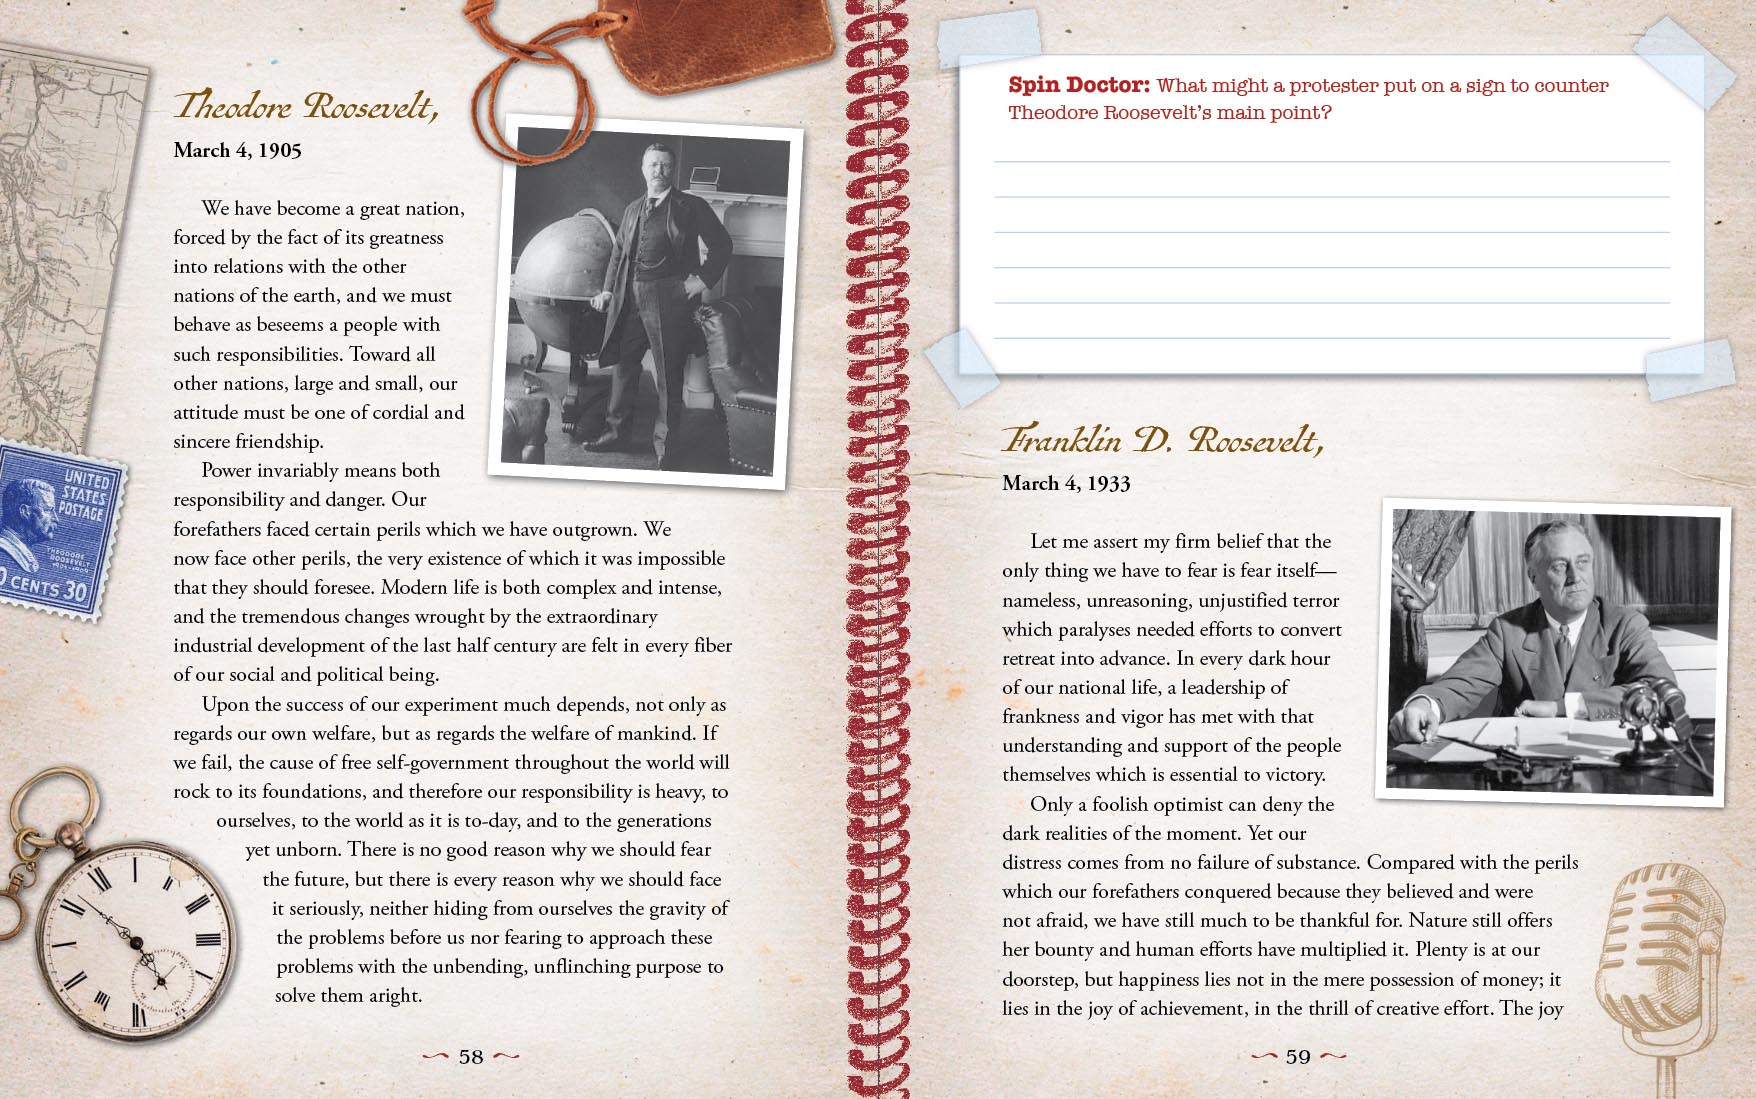 Theodore Roosevelt,
March 4, 1905
We have become a great nation,
forced by the fact of its greatness
into relations with the other
nations of the earth, and we must
behave as beseems a people with
such responsibilities. Toward all
other nations, large and small, our
attitude must be one of cordial and
sincere friendship.
Power invariably means both
responsibility and danger. Our
forefathers faced certain perils which we have outgrown. We
now face other perils, the very existence of which it was impossible
that they should foresee. Modern life is both complex and intense,
and the tremendous changes wrought by the extraordinary
industrial development of the last half century are felt in every fiber
of our social and political being.
Upon the success of our experiment much depends, not only as
regards our own welfare, but as regards the welfare of mankind. If
we fail, the cause of free self-government throughout the world will
rock to its foundations, and therefore our responsibility is heavy, to
ourselves, to the world as it is to-day, and to the generations
yet unborn. There is no good reason why we should fear
the future, but there is every reason why we should face
it seriously, neither hiding from ourselves the gravity of
the problems before us nor fearing to approach these
problems with the unbending, unflinching purpose to
solve them aright.
58
UNITED
STATES
POSTAGE
THEODORE
ROOSEVELT
1901-1909
0 CENTS 30
Spin Doctor: What might a protester put on a sign to counter
Theodore Roosevelt's main point?
Franklin D. Roosevelt,
March 4, 1933
Let me assert my firm belief that the
only thing we have to fear is fear itself—
nameless, unreasoning, unjustified terror
which paralyses needed efforts to convert
retreat into advance. In every dark hour
of our national life, a leadership of
frankness and vigor has met with that
understanding and support of the people
themselves which is essential to victory.
Only a foolish optimist can deny the
dark realities of the moment. Yet our
distress comes from no failure of substance. Compared with the perils
which our forefathers conquered because they believed and were
not afraid, we have still much to be thankful for. Nature still offers
her bounty and human efforts have multiplied it. Plenty is at our
doorstep, but happiness lies not in the mere possession of money; it
lies in the joy of achievement, in the thrill of creative effort. The joy
59